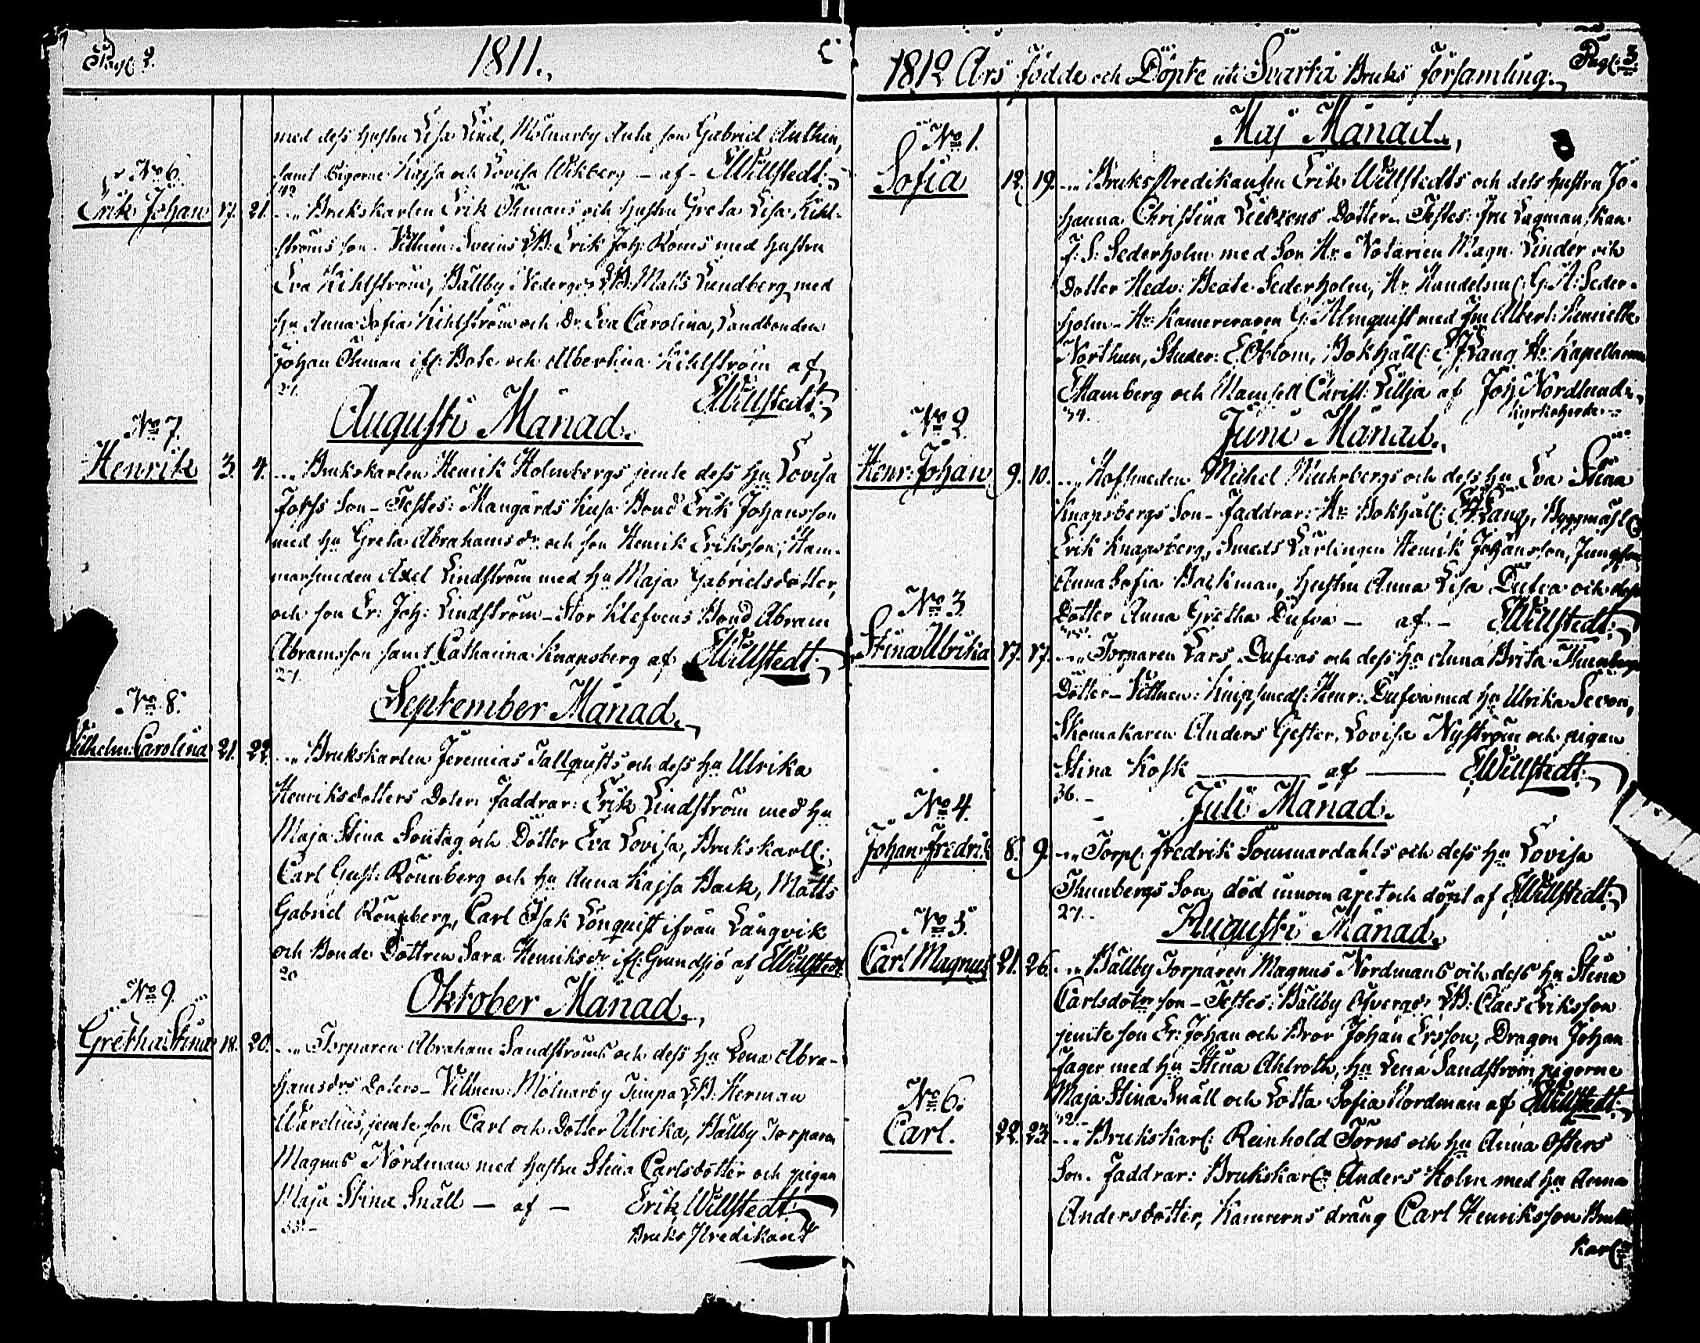 Pag. 2.
1811.
med dess hustru Lisa Lind, Molnarby Anta son Gabriel
samt Pigorne Kajsa och Lovisa Wikberg — af — EWillstedt.
No 6.
Erik Johan 17. 21.
Brukskarlen Erik Öhmans och hustru Greta Lisa Kihl-
ströms son. Vittnen: Erik Joh: Roms med hustru
Eva Kihlström, Bällby Matts Lundberg med
hu Anna Sofia Kihlström och Dr Eva Carolina, Landbonden
Johan Öhman och Albertina Kihlström af
27.
EWillstedt.
Augusti Månad.
No 7.
Henrik 3. 4.
Brukskarlen Henrik Holmbergs jemte dess hu Lovisa
son – Testes: Mangårds Kusa Bond Erik Johansson
med hu Greta Abrahamsdr och son Henrik Eriksson, Ham-
marsmeden Axel Lindström med hu Maja Gabrielsdotter,
och son Er: Joh: Lindström – Stor Klefvens Bond Abram
Abramsson samt Catharina Knapsberg af EWillstedt.
27.
September Månad.
No 8.
Vilhelm: Carolina 21. 22.
Brukskarlen Jeremias Tallqvists och dess hu Ulrika
Henriksdotters Doter: faddrar: Erik Lindström med hu
Maja Stina Sontag och Dotter Eva Lovisa, Brukskarll:
Carl Gust: Rönnberg och hu Anna Kajsa Back, Matts
Gabriel Rönnberg, Carl Isak Lönquist ifrån Långvik
och Bonde Dottren Sara Henriksdr ifr: Grundsjö af EWillstedt
Oktober Månad.
No 9.
Gretha Stina 18. 20.
Torparen Abraham Sandströms och dess hu Lena Abra-
hamsdrs Doter – Vittnen: Molnarby Timpa Herman
Warelius, jemte son Carl och Dotter Ulrika, Bällby Torparen
Magnus Nordman med hustru Stina Carlsdotter och pigan
Maja Stina Snäll — af — Erik Willstedt
Bruks Predikant
Pag: 3.
1812 Års födde och Döpte uti Svartå Bruks församling.
Maj Månad.
No 1.
Sofia 12. 19.
Bruks Predikanten Erik Willstedts och dess hustru Jo-
hanna Christina Dotter. Testes: Fru Lagman, skan
J: S: Sederholm med Son Hr Notarien Magn: Linder och
Dotter Hedv: Beate Sederholm, Hr Handelsm: G: A: Seder-
holm – Hr Kamereraren G: Almquist med fru Albert: Henriette
Northun, Studer: E. Oblom, Bokhåll: E. Hr Kapellanen
Stamberg och Mamsell Christ: Lillja af Joh: Nordlund
Kyrkoherde.
34.
Juni Månad.
No 2.
Henr: Johan 9. 10.
Hofsmeden Mickel Muhrbergs och dess hu Eva Stina
Knapsbergs Son – faddrar: Hr Bokhåll: Byggmäst:
Erik Knapsberg, Smeds Lärlingen Henrik Johansson, Jungfrun
Anna Sofia Backman, hustru Anna Lisa Dufva och dess
Dotter Anna Gretha Dufva — af — EWillstedt.
No 3.
Stina Ulrika 17. 17.
Torparen Lars Dufvas och dess hu Anna Brita Thunbergs
Dotter – Vittnen: Knipsmed: Henr: Dufva med hu Ulrika
Skomakaren Anders Gester, Lovisa Nyström och pigan
Stina Kosk — af — EWillstedt.
36.
Juli Månad.
No 4.
Johan Fredrik 8. 9.
Torp: Fredrik Sommardahls och dess hu Lovisa
Thunbergs Son, död innom året och döpt af EWillstedt.
27.
Augusti Månad.
No 5.
Carl Magnus 21. 26.
Bällby Torparen Magnus Nordmans och dess hu Stina
Carlsdoters son – Testes: Bällby Claes Eriksson
jemte son Er: Johan och Bror Johan Ersson, Dragon Johan
Jager med hu Stina Ahlroth, hu Lena Sandström, pigorne
Maja Stina Snäll och Lotta Sofia Nordman af EWillstedt.
No 6.
Carl. 22. 23.
Brukskarl: Reinhold Törns och hu Anna Östers
Son. faddrar: Brukskarln Anders Holm med hu Anna
Andersdotter, Kamrerns dräng Carl Henriksson Bruks
karln